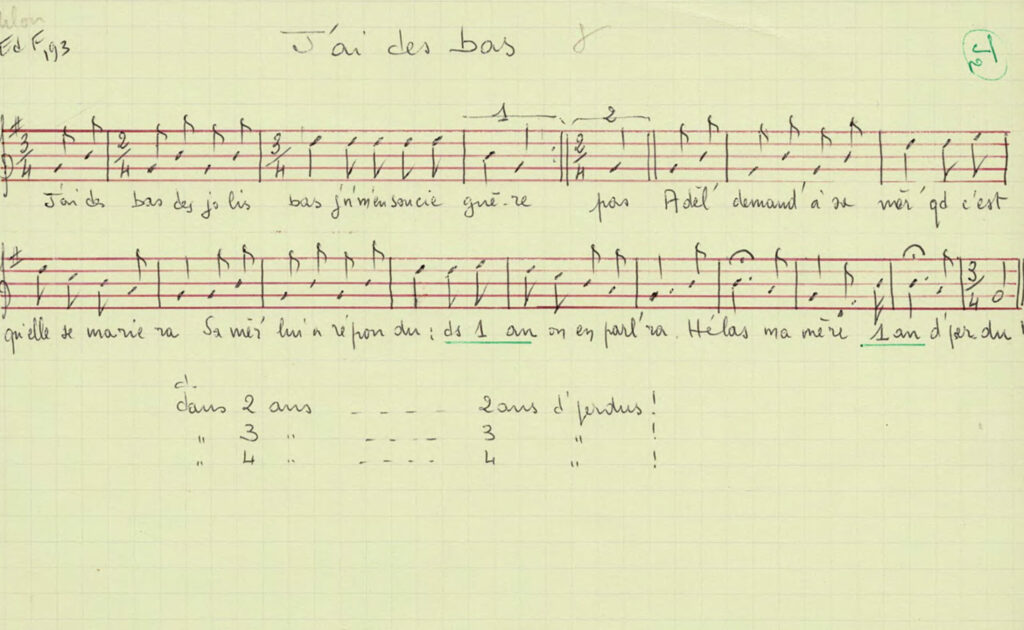 Ed F,93
J'ai des bas
J2
1 2
3/4 2/4 3/4 2/4
J'ai des bas des jolis bas j'n'm'en soucie guè-re pas Adèl' demand' à sa mèr' qd c'est
qu'elle se marie ra Sa mèr' lui a répon du : ds 1 an on en parl'ra. Hélas ma mère 1 an d'per.du
3/4
d.
dans 2 ans - - - - 2 ans d'perdus !
" 3 " - - - - 3 " !
" 4 " - - - - 4 " !